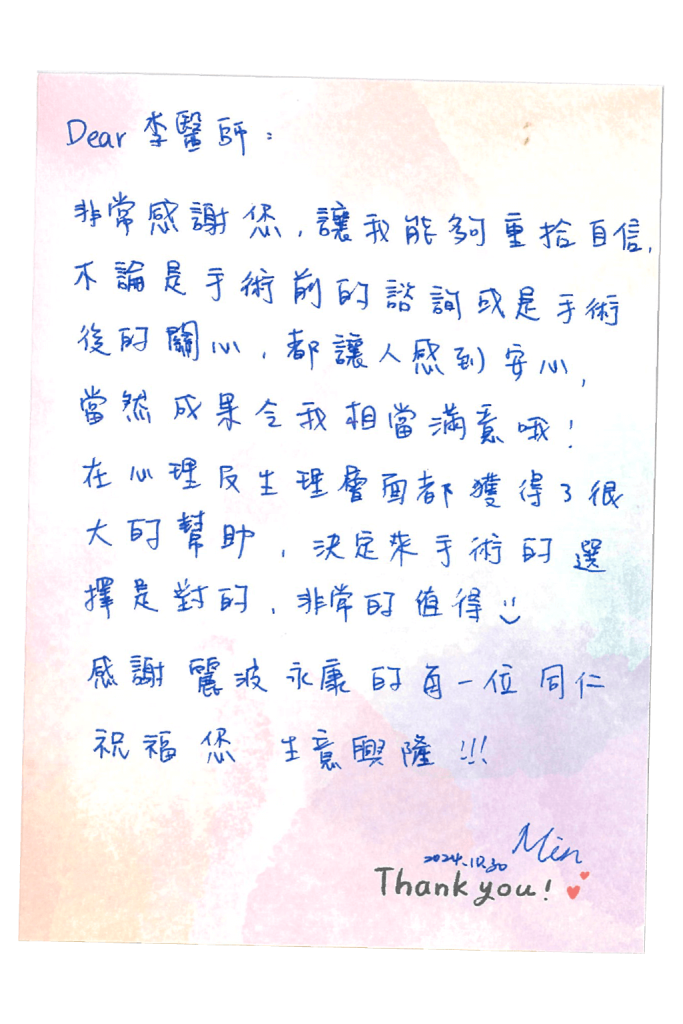 Dear 李醫師:
非常感謝您,讓我能夠重拾自信,
不論是手術前的諮詢或是手術
後的關心,都讓人感到安心,
當然成果令我相當滿意哦!
在心理及生理層面都獲得了很
大的幫助,決定來手術的選
擇是對的,非常的值得
感謝麗波永康的每一位同仁
祝福您 生意興隆!!!
Min
2024.10.30
Thank you!